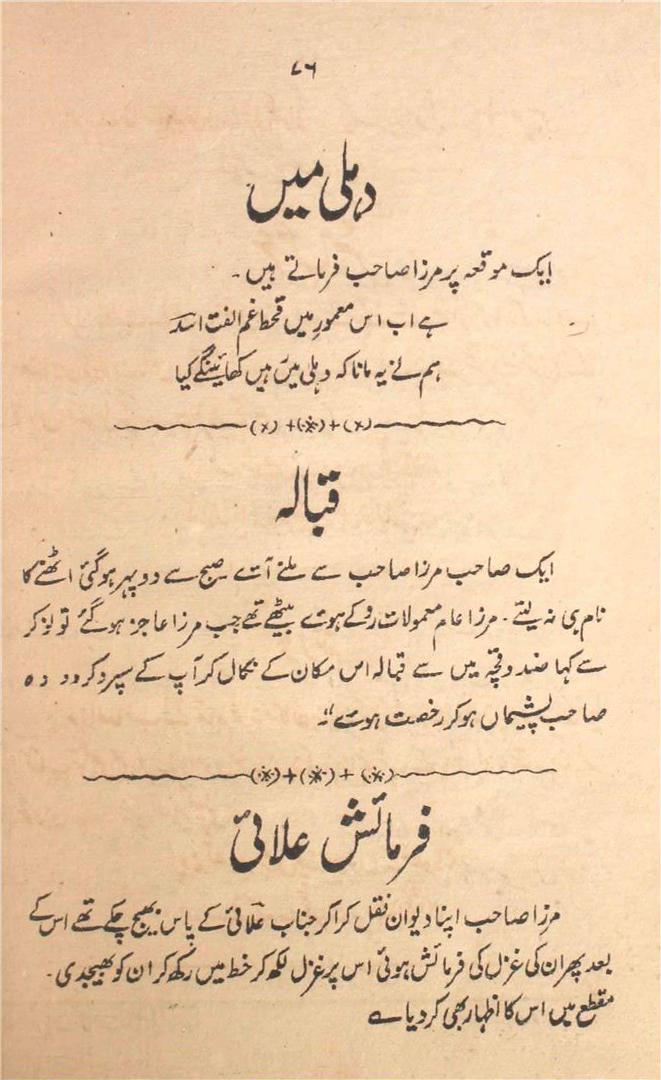 ۷۶
دہلی میں
ایک موقعہ پر مرزا صاحب فرماتے ہیں ۔
ہے اب اس معمورِ میں قحط غم الفت اسد
ہم نے یہ مانا کہ دہلی میں ہیں کھائینگے کیا
(×)+(※)+(×)
قبالہ
ایک صاحب مرزا صاحب سے ملنے آتے صبح سے دوپہر ہوگئی اٹھنے کا
نام ہی نہ لیتے ۔ مرزا عام معمولات روکے ہوئے بیٹھے تھے جب مرزا عاجز ہوگئے تو نوکر
سے کہا صندوقچہ میں سے قبالہ اس مکان کے نکال کر آپ کے سپرد کردو وہ
صاحب پشیماں ہوکر رخصت ہوئے"۔
(※)+(※)+(※)
فرمائش علائی
مرزا صاحب اپنا دیوان نقل کرا کر جناب علائی کے پاس بھیج چکے تھے اس کے
بعد پھر ان کی غزل کی فرمائش ہوئی اس پر غزل لکھ کر خط میں رکھ کر ان کو بھیجدی ۔
مقطع میں اس کا اظہار بھی کر دیا ہے